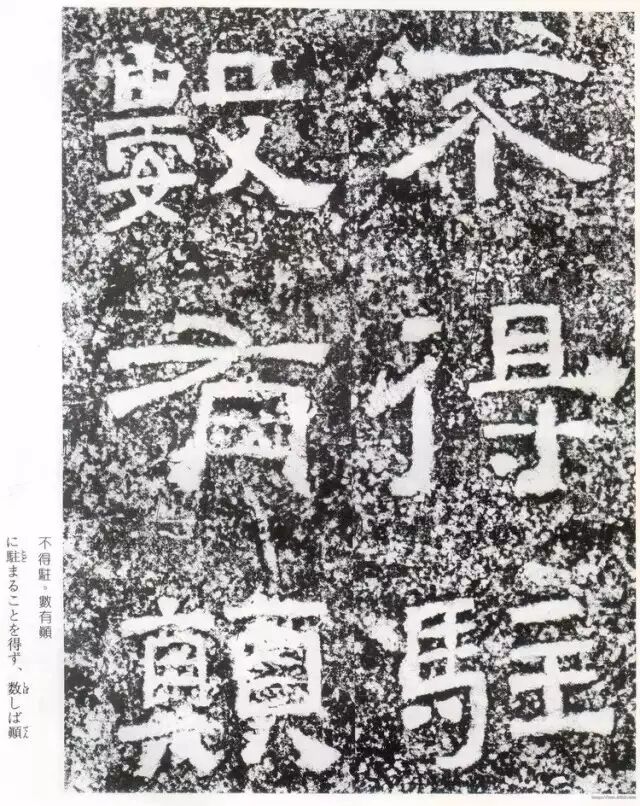 不得駐
數有顛
不得駐。數有顚
に駐まることを得ず、数しば顚